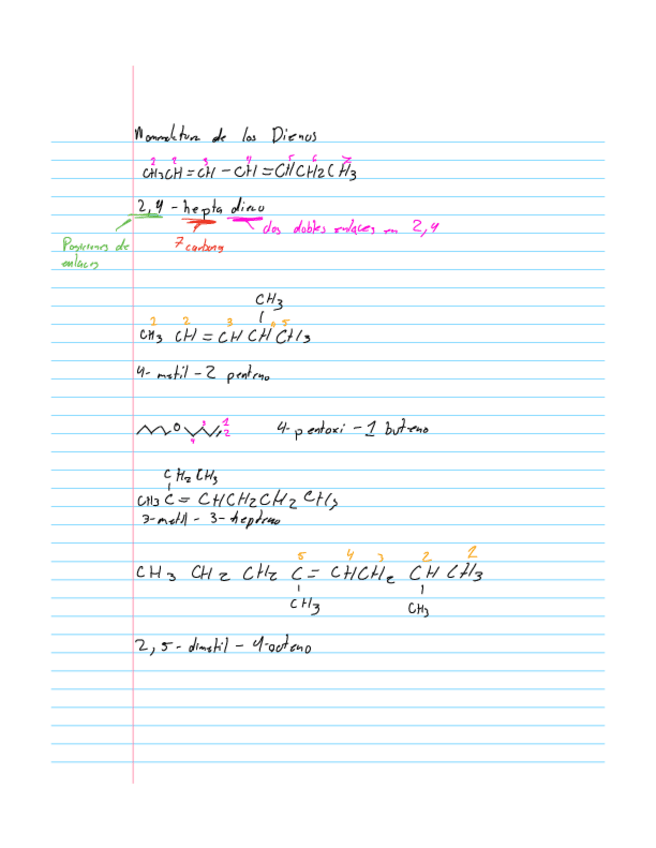 Nomenklatura de los Dienos
1 2 3 4 5 6 7
CH3CH = CH - CH = CHCH2CH3
2, 4 - hepta dieno
dos dobles enlaces en 2, 4
Posiciones de
enlaces
7 carbonos
CH3
1 2 3 4 5
CH3 CH = CH CH CH3
4- metil - 2 penteno
O 3 1
4 2
4- pentoxi - 1 buteno
CH2 CH3
CH3 C = CHCH2CH2 CH3
3-metil - 3-hepteno
5 4 3 2 1
CH3 CH2 CH2 C = CHCH2 CH CH3
CH3 CH3
2, 5 - dimetil - 4-octeno